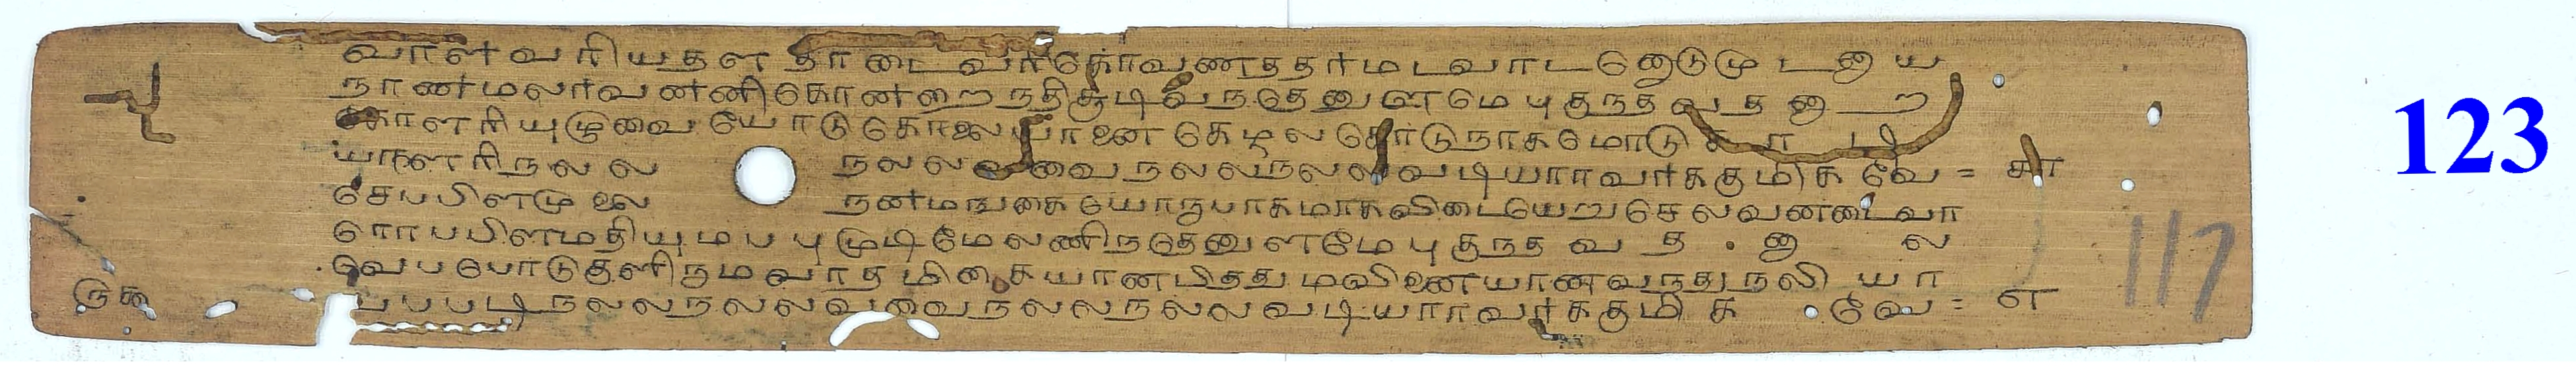 வாளவரியதளதாடைவரிகோவணததர்மடவாடனொடுமுடனாய
நாண்மலர்வன்னிகொன்றைநதிசூடிவந்தெனுளமேபுகுந்தவதனாற
கோளரியுழுவையோடுகொலையானைகேழலகொடுநாகமோடுகரடி
யாளரிநலல நலலவவைநலலநலலவடியாரவர்க்குமிகவே = ௬
செபபிளமுலை நன்மஙகையொருபாகமாகவிடையேறுசெலவனடைவா
ரொபபிளமதியுமபபுமுடிமேலணிநதெனுளமேபுகுநதவதனால
வெபபொடுகுளிருமவாதமிகையானபிததுமவினையானவநதுநலியா
பபபடிநலலநலலவவைநலலநலலவடியாரவர்ககுமிகவே = ௭
௫௯
117
123